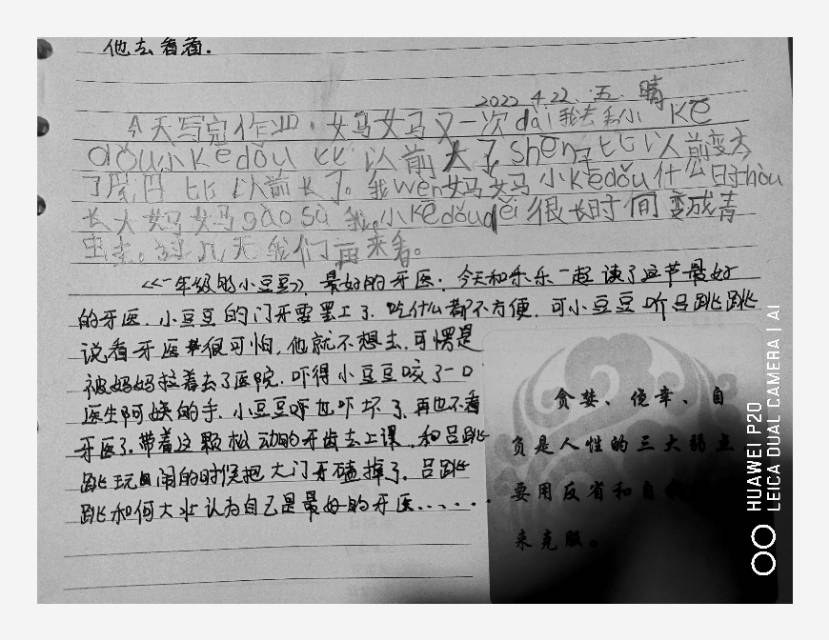 他去看看.
2022 4.22 五 晴
今天写完作业,妈妈又一次dài我去看小Kē
dǒu小Kēdǒu比以前大了shēn子比以前变大
了尾巴比以前长了。我wèn妈妈小Kēdǒu什么时hòu
长大妈妈gào sù我,小Kēdǒuděi很长时间变成青
虫圭。过几天我们再来看。
<<一年级的小豆豆>>,最好的牙医:今天和乐乐一起读了这节最好
的牙医.小豆豆的门牙要罢工了.吃什么都不方便.可小豆豆听吕跳跳
说看牙医很可怕,他就不想去.可愣是
被妈妈拉着去了医院.吓得小豆豆咬了一口
医生阿姨的手.小豆豆呀也吓坏了.再也不看
牙医了.带着这颗松动的牙齿去上课.和吕跳
跳玩闹的时候把大门牙磕掉了.吕跳
跳和何大壮认为自己是最好的牙医......
贪婪、侥幸、自
负是人性的三大弱点
要用反省和自
来克服。
HUAWEI P20
LEICA DUAL CAMERA | AI